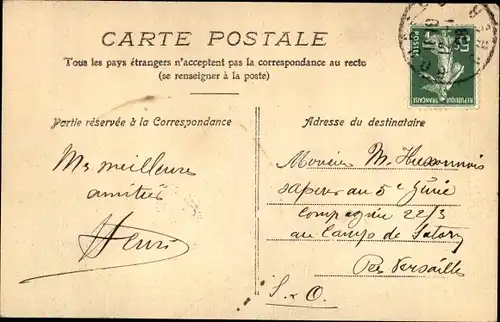 CARTE POSTALE
Tous les pays étrangers n'acceptent pas la correspondance au recto
(se renseigner à la poste)
POSTES
REPUBLIQUE FRANÇAISE
Partie réservée à la Correspondance
Adresse du destinataire
Mes meilleures
amitiés
Henri
Monsieur M. Hussonnois
sapeur au 5e Génie
Compagnie 22/3
au Camp de Satory
Per Versailles
S. & O.